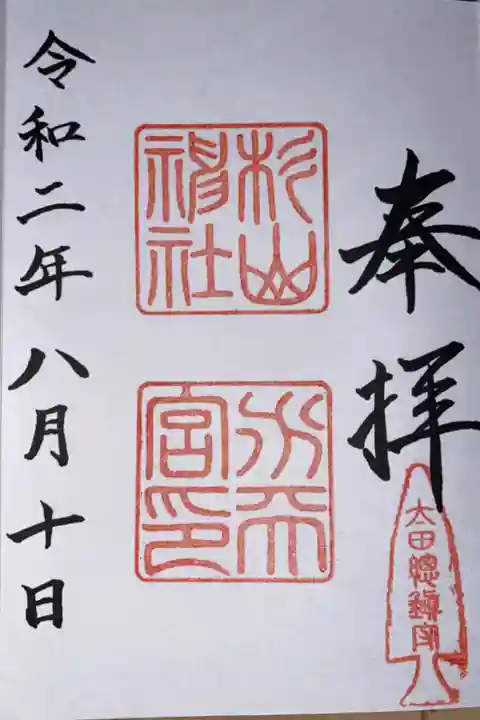 奉拝
太田總鎮守
杉山
神社
水天
宮印
令和二年八月十日